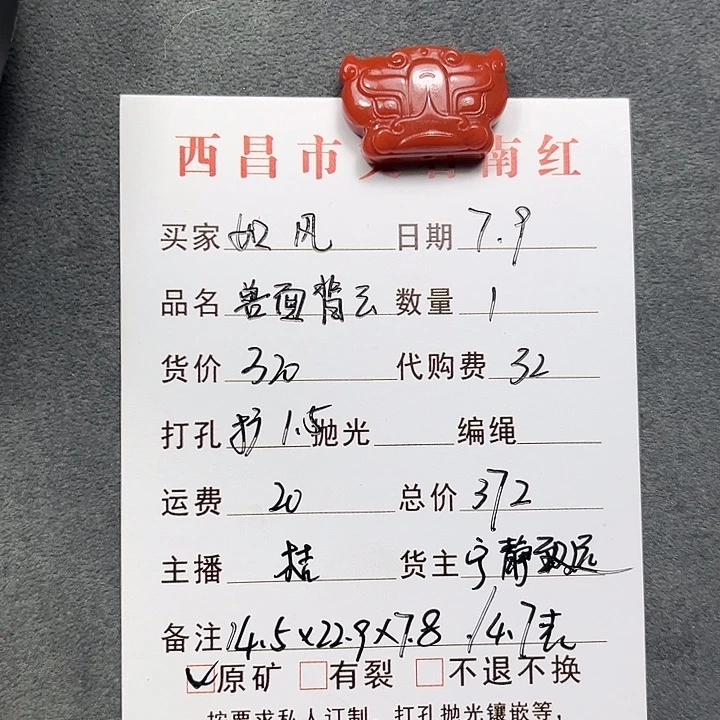 西昌市南红
买家 如风 日期 7.9
品名 兽面背云 数量 1
货价 320 代购费 32
打孔 打1.5 抛光 编绳
运费 20 总价 372
主播 桔 货主 宁静致远
备注 14.5×22.9×7.8 /4.7克
原矿 有裂 不退不换
按要求私人订制，打孔抛光镶嵌等，